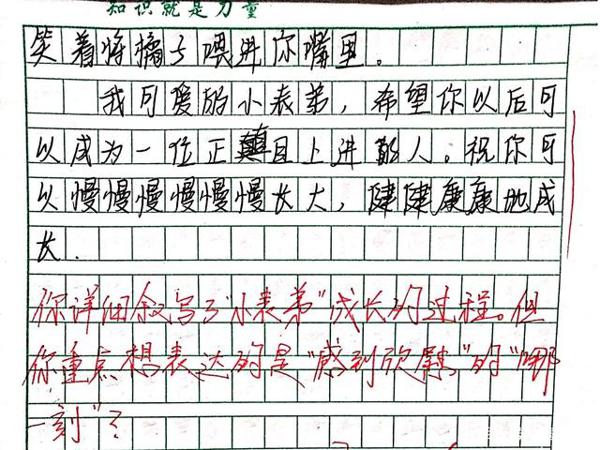 知识就是力量
笑着将橘子喂进你嘴里。
我可爱的小表弟，希望你以后可
以成为一位正且上进的人。祝你可
以慢慢慢慢慢慢长大，健健康康地成
长.
你详细叙写了"小表弟"成长的过程。但
你重点想表达的是"感到欣慰"的"哪
一刻"？